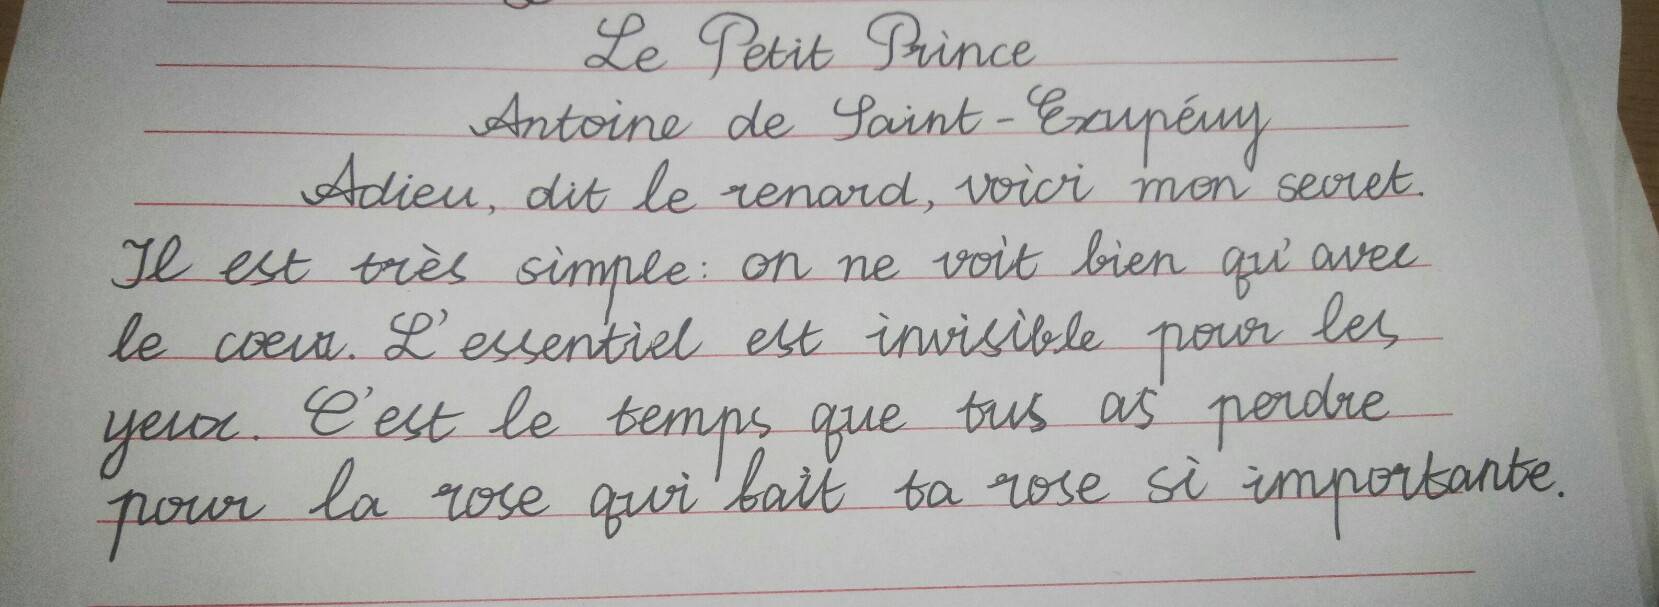 Le Petit Prince
Antoine de Saint-Exupéry
Adieu, dit le renard, voici mon secret.
Il est très simple: on ne voit bien qu'avec
le coeur. L'essentiel est invisible pour les
yeux. C'est le temps que tus as perdre
pour la rose qui fait ta rose si importante.